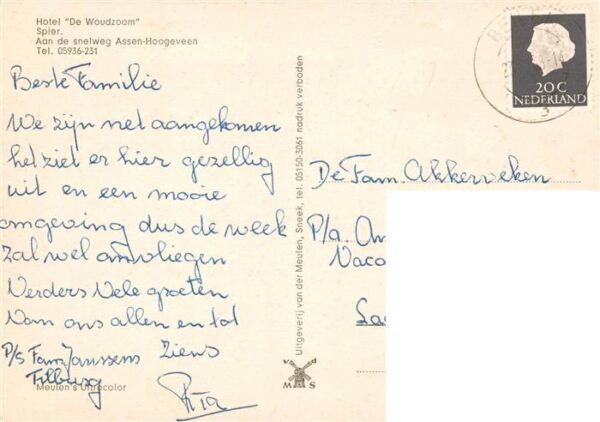 Hotel "De Woudzoom"
Spier.
Aan de snelweg Assen-Hoogeveen
Tel. 05936-231
Beste Familie
We zijn net aangekomen
het ziet er hier gezellig
uit en een mooie
omgeving dus de week
Zal wel omvliegen
Verders Vele groeten
Van ons allen en tot
Ziens
P/S Fam. Janssens
Tilburg
Rita
Meulen's Ultracolor
Uitgeverij van der Meulen, Sneek, tel. 05150-3061 nadruk verboden
v d
M S
20 C
NEDERLAND
De Fam Akkerveken
P/a.